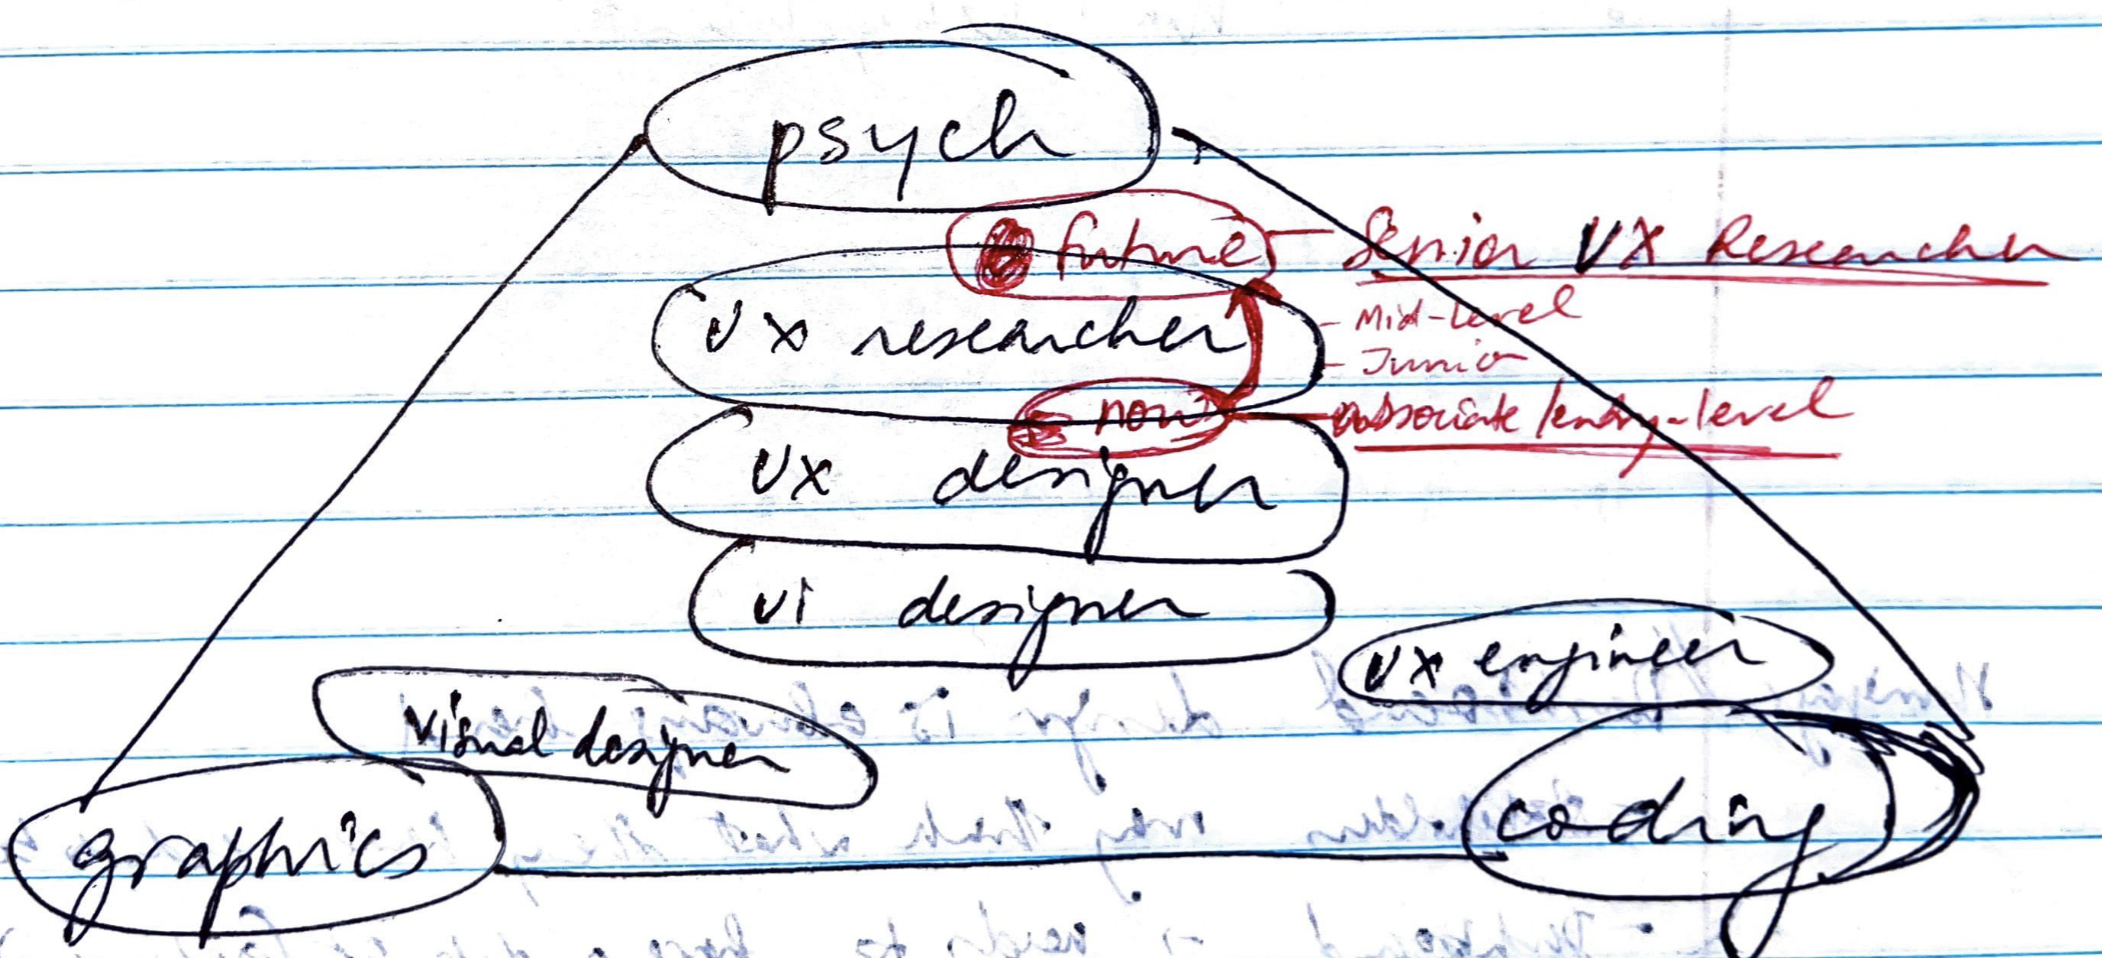 psych
future - Senior UX Researcher
UX researcher
- Mid-level
- Junior
now - associate/entry-level
UX designer
UI designer
UX engineer
visual designer
graphics
coding